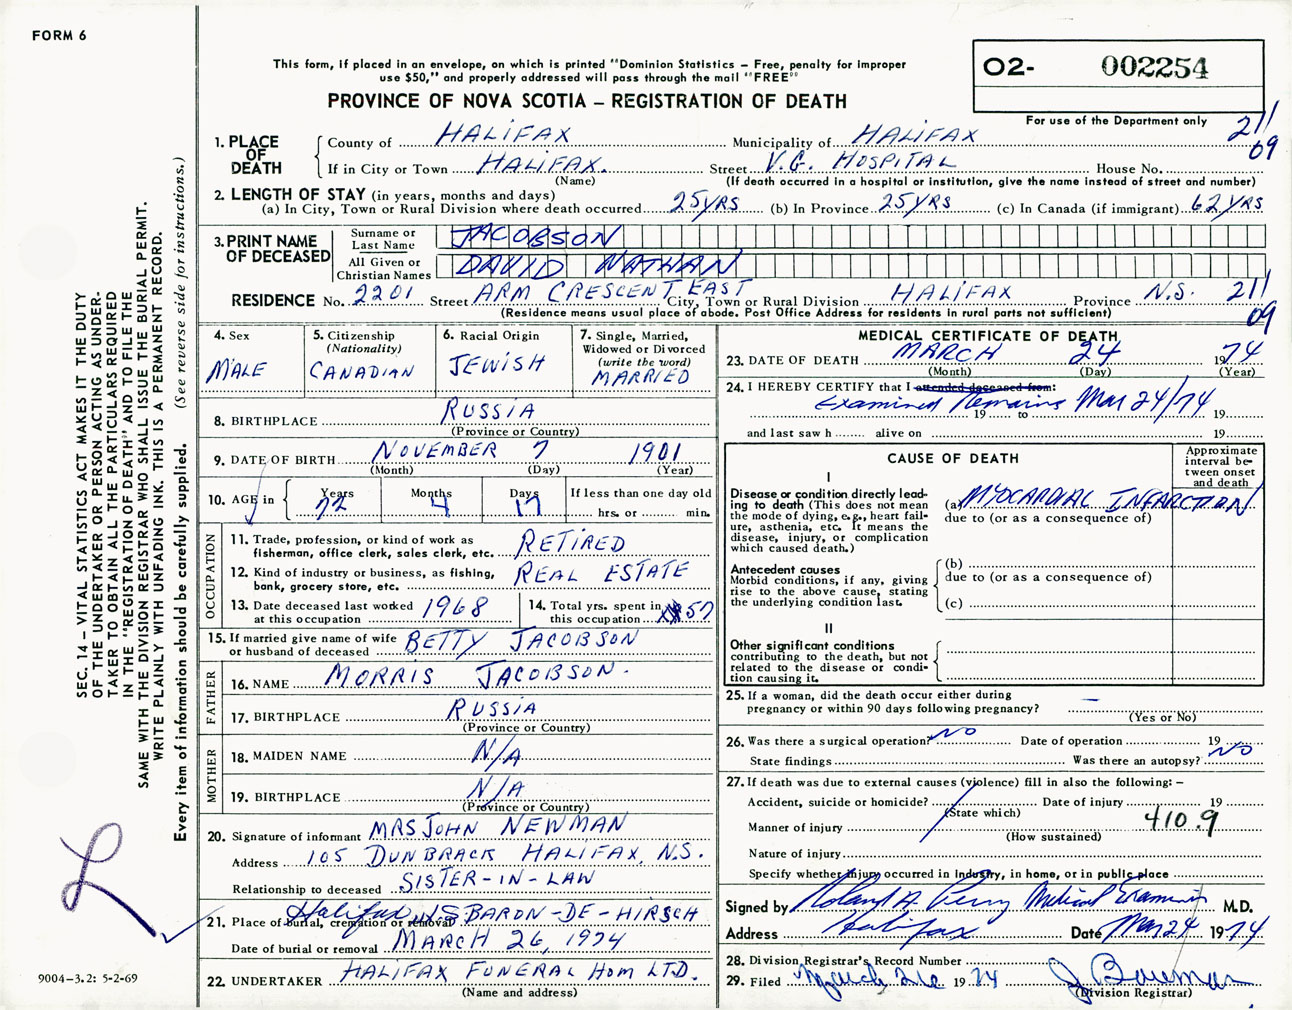 FORM 6
This form, if placed in an envelope, on which is printed "Dominion Statistics – Free, penalty for improper
use $50," and properly addressed will pass through the mail "FREE"
PROVINCE OF NOVA SCOTIA – REGISTRATION OF DEATH
O2- 002254
For use of the Department only
211
09
1. PLACE OF DEATH
County of HALIFAX Municipality of HALIFAX
If in City or Town HALIFAX. Street V.G. HOSPITAL House No.
(Name) (If death occurred in a hospital or institution, give the name instead of street and number)
2. LENGTH OF STAY (in years, months and days)
(a) In City, Town or Rural Division where death occurred 25 YRS (b) In Province 25 YRS (c) In Canada (if immigrant) 62 YRS
3. PRINT NAME OF DECEASED
Surname or Last Name JACOBSON
All Given or Christian Names DAVID NATHAN
RESIDENCE No. 2201 Street ARM CRESCENT EAST City, Town or Rural Division HALIFAX Province N.S. 211
09
(Residence means usual place of abode. Post Office Address for residents in rural parts not sufficient)
4. Sex
MALE
5. Citizenship
(Nationality)
CANADIAN
6. Racial Origin
JEWISH
7. Single, Married,
Widowed or Divorced
(write the word)
MARRIED
8. BIRTHPLACE RUSSIA
(Province or Country)
9. DATE OF BIRTH NOVEMBER 7 1901
(Month) (Day) (Year)
10. AGE in Years 72 Months 4 Days 17 If less than one day old
hrs. or min.
OCCUPATION
11. Trade, profession, or kind of work as
fisherman, office clerk, sales clerk, etc. RETIRED
12. Kind of industry or business, as fishing,
bank, grocery store, etc. REAL ESTATE
13. Date deceased last worked
at this occupation 1968
14. Total yrs. spent in
this occupation 57
15. If married give name of wife
or husband of deceased BETTY JACOBSON
FATHER
16. NAME MORRIS JACOBSON.
17. BIRTHPLACE RUSSIA
(Province or Country)
MOTHER
18. MAIDEN NAME N/A
19. BIRTHPLACE N/A
(Province or Country)
20. Signature of informant MRS JOHN NEWMAN
Address 105 DUNBRACK HALIFAX, N.S.
Relationship to deceased SISTER-IN-LAW
21. Place of burial, cremation or removal Halifax NS BARON-DE-HIRSCH
Date of burial or removal MARCH 26, 1974
22. UNDERTAKER HALIFAX FUNERAL HOM LTD.
(Name and address)
MEDICAL CERTIFICATE OF DEATH
23. DATE OF DEATH MARCH 24 1974
(Month) (Day) (Year)
24. I HEREBY CERTIFY that I attended deceased from:
Examined Remains Mar 24/74
19 to 19
and last saw h alive on 19
CAUSE OF DEATH
Approximate
interval be-
tween onset
and death
I
Disease or condition directly lead-
ing to death (This does not mean
the mode of dying, e.g., heart fail-
ure, asthenia, etc. It means the
disease, injury, or complication
which caused death.)
(a) MYOCARDIAL INFARCTION
due to (or as a consequence of)
Antecedent causes
Morbid conditions, if any, giving
rise to the above cause, stating
the underlying condition last.
(b)
due to (or as a consequence of)
(c)
II
Other significant conditions
contributing to the death, but not
related to the disease or condi-
tion causing it.
25. If a woman, did the death occur either during
pregnancy or within 90 days following pregnancy? —
(Yes or No)
26. Was there a surgical operation? NO Date of operation 19
State findings Was there an autopsy? NO
27. If death was due to external causes (violence) fill in also the following: –
Accident, suicide or homicide? Date of injury 19
(State which)
Manner of injury 410.9
(How sustained)
Nature of injury
Specify whether injury occurred in Industry, in home, or in public place
Signed by Roland A. Perry Medical Examiner M.D.
Address Halifax Date Mar 24 1974
28. Division Registrar's Record Number
29. Filed March 26 1974 J Bauman
(Division Registrar)
SEC. 14 – VITAL STATISTICS ACT MAKES IT THE DUTY
OF THE UNDERTAKER OR PERSON ACTING AS UNDER-
TAKER TO OBTAIN ALL THE PARTICULARS REQUIRED
IN THE "REGISTRATION OF DEATH" AND TO FILE THE
SAME WITH THE DIVISION REGISTRAR WHO SHALL ISSUE THE BURIAL PERMIT.
WRITE PLAINLY WITH UNFADING INK. THIS IS A PERMANENT RECORD.
Every item of information should be carefully supplied. (See reverse side for instructions.)
9004–3.2: 5-2-69